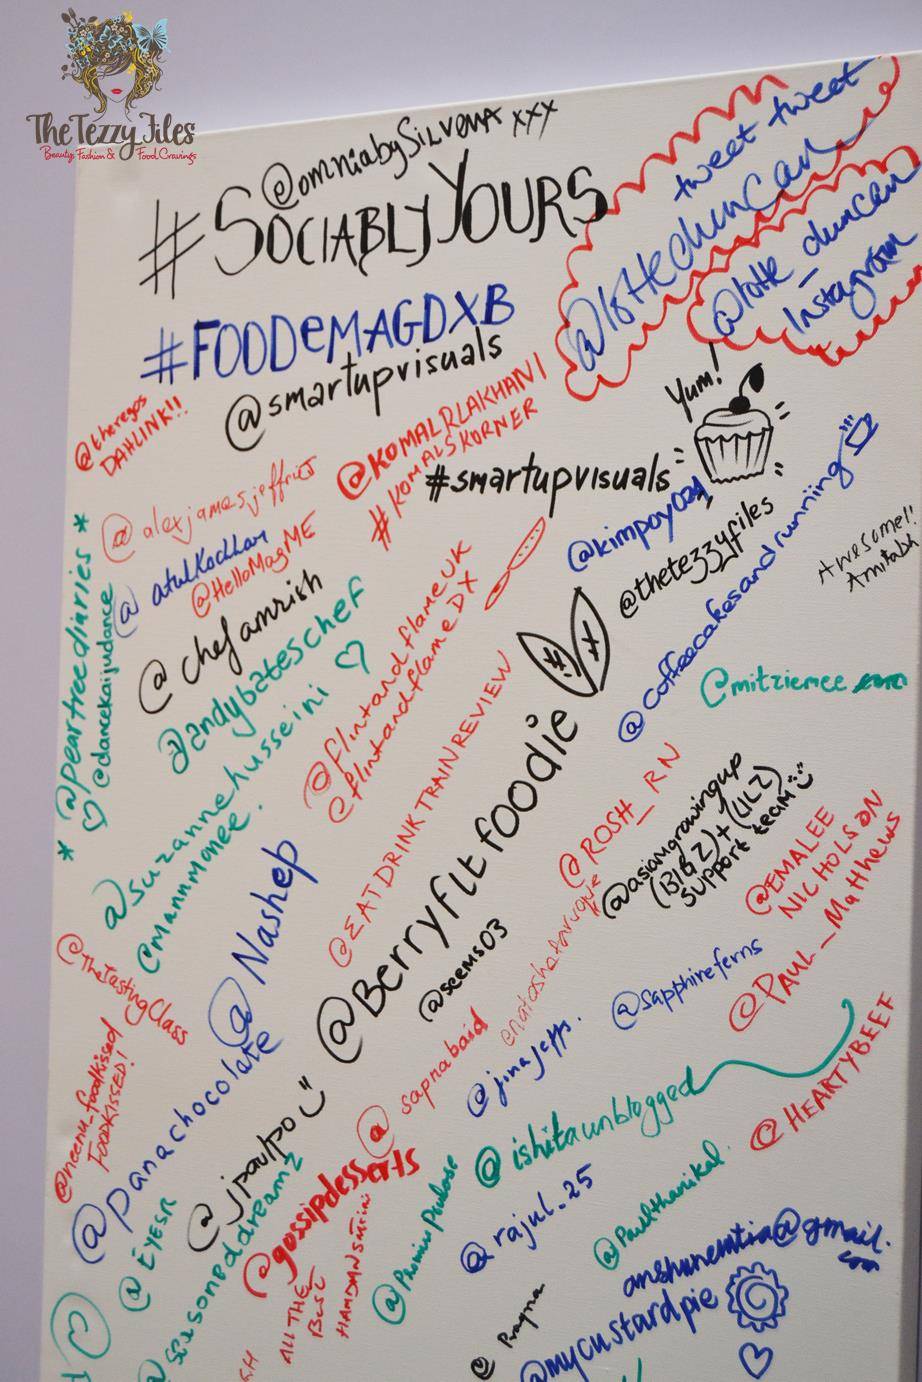 The Tezzy Files
Beauty, Fashion & Food Cravings
@omniabySILVENA xxx
#SOCIABLYYOURS
tweet tweet
@lotteduncan
@lotte_duncan
Instagram
#FOODeMAGDXB
@smartupvisuals
Yum!
@theregos
DAHLINK!!
@KOMALRLAKHANI
#KOMALSKORNER
#smartupvisuals
@alexjamesjeffries
@atulkochhar
@HelloMagME
@kimpoy024
@thetezzyfiles
@coffeecakesandrunning
Awesome!!
Amitabh
* @peartreediaries *
@dancekaijudance
@chefamrish
@andybateschef
@flintandflameUK
@flintandflameDX
@mitziemee.com
@suzannehusseini
@Mannmonee.
@EATDRINKTRAINREVIEW
@Berryfitfoodie
@ROSH_RN
@asiangrowingup
(BIBZ) + (LILZ)
support team
@EMALEE
NICHOLSON
@PAUL_Matthews
@Nashep
@seems03
@sapphireferns
@TheTastingClass
@neenu_foodkissed
FOODKISSED!
@panachocolate
@jpaulpo
@sapnabaid
@jinajeffs.
@ishitaunblogged
@HEARTYBEEF
@EYESR
@seasoneddreamz
@gossipdesserts
ALL THE
BEST
@rajul_25
@Paulthanikal.
anshunemtia@gmail.
com
@mycustardpie
@Pragna